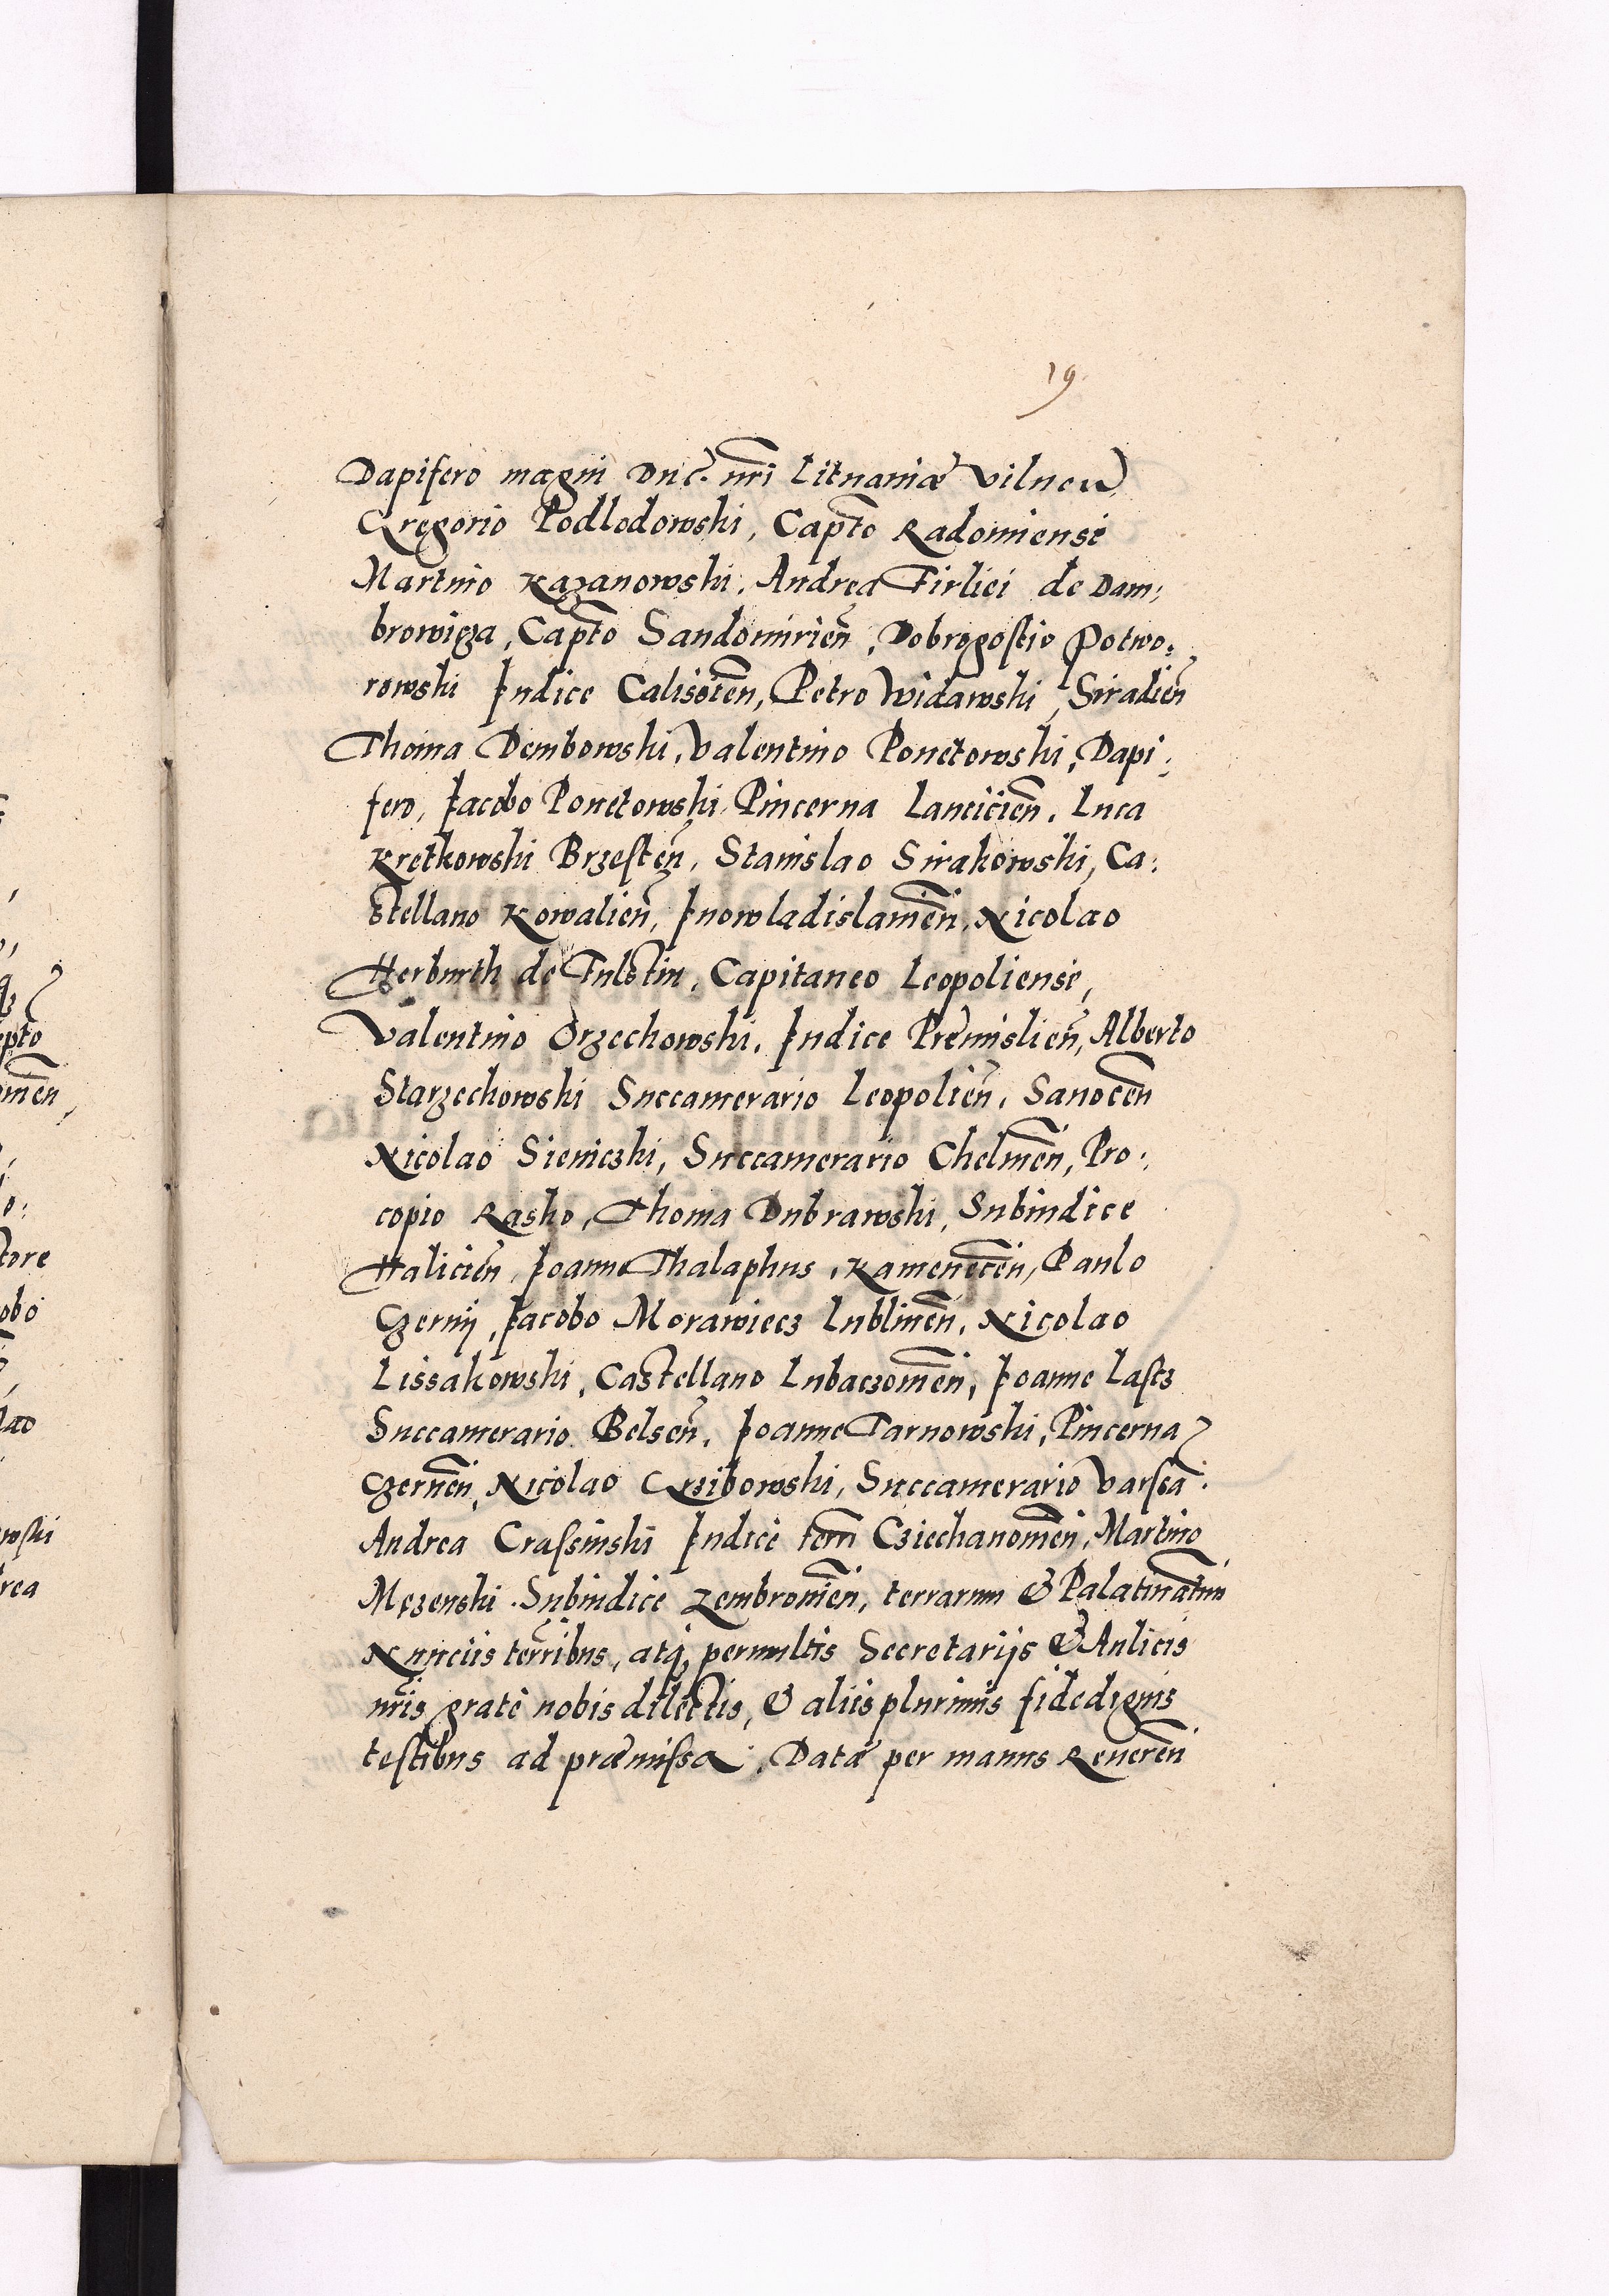 19.
Dapifero magni Duc. nr̃i Lituaniæ Vilnen
Gregorio Podlodowski, Capt̃o Radomiensi
Martino Kazanowski, Andrea Firliei de Dam:
browicza, Capt̃o Sandomirien̄, Dobrogostio Potwo:
rowski Iudice Calisien̄, Petro Widawski, Siradien̄
Thoma Dembowski, Valentino Ponetowski, Dapi:
fero, Iacobo Ponetowski Pincerna Lancicien̄. Luca
Kretkowski Brzesten̄, Stanislao Sirakowski, Ca:
stellano Kowalien̄, Inowladislauien̄, Nicolao
Herburth de Fulstin, Capitaneo Leopoliensi,
Valentino Orzechowski, Iudice Premislien̄, Alberto
Starzechowski Succamerario Leopolien̄, Sanocen̄
Nicolao Sieniczki, Succamerario Chelmen̄, Pro:
copio Rasko, Thoma Dubrawski, Subiudice
Halicien̄, Ioanne Thalaphus, Kamenecen̄, Paulo
Czernij, Iacobo Morawiecz Lublinen̄, Nicolao
Lissakowski, Castellano Lubaczouien̄, Ioanne Lastz
Succamerario Belsen̄, Ioanne Tarnowski, Pincerna
Czernen̄, Nicolao Grzibowski, Succamerario Varssa:
Andrea Crassinski Iudice terr̄ Cziechanouien̄, Martino
Mezenski Subiudice Zembrouien̄, terrarum & Palatinatuũ
Nunciis terr̄ibus, atq; permultis Secretarijs & Aulicis
nr̃is gratè nobis dilectis, & aliis plurimis fidedignis
testibus ad præmissa. Datæ per manus Reueren̄